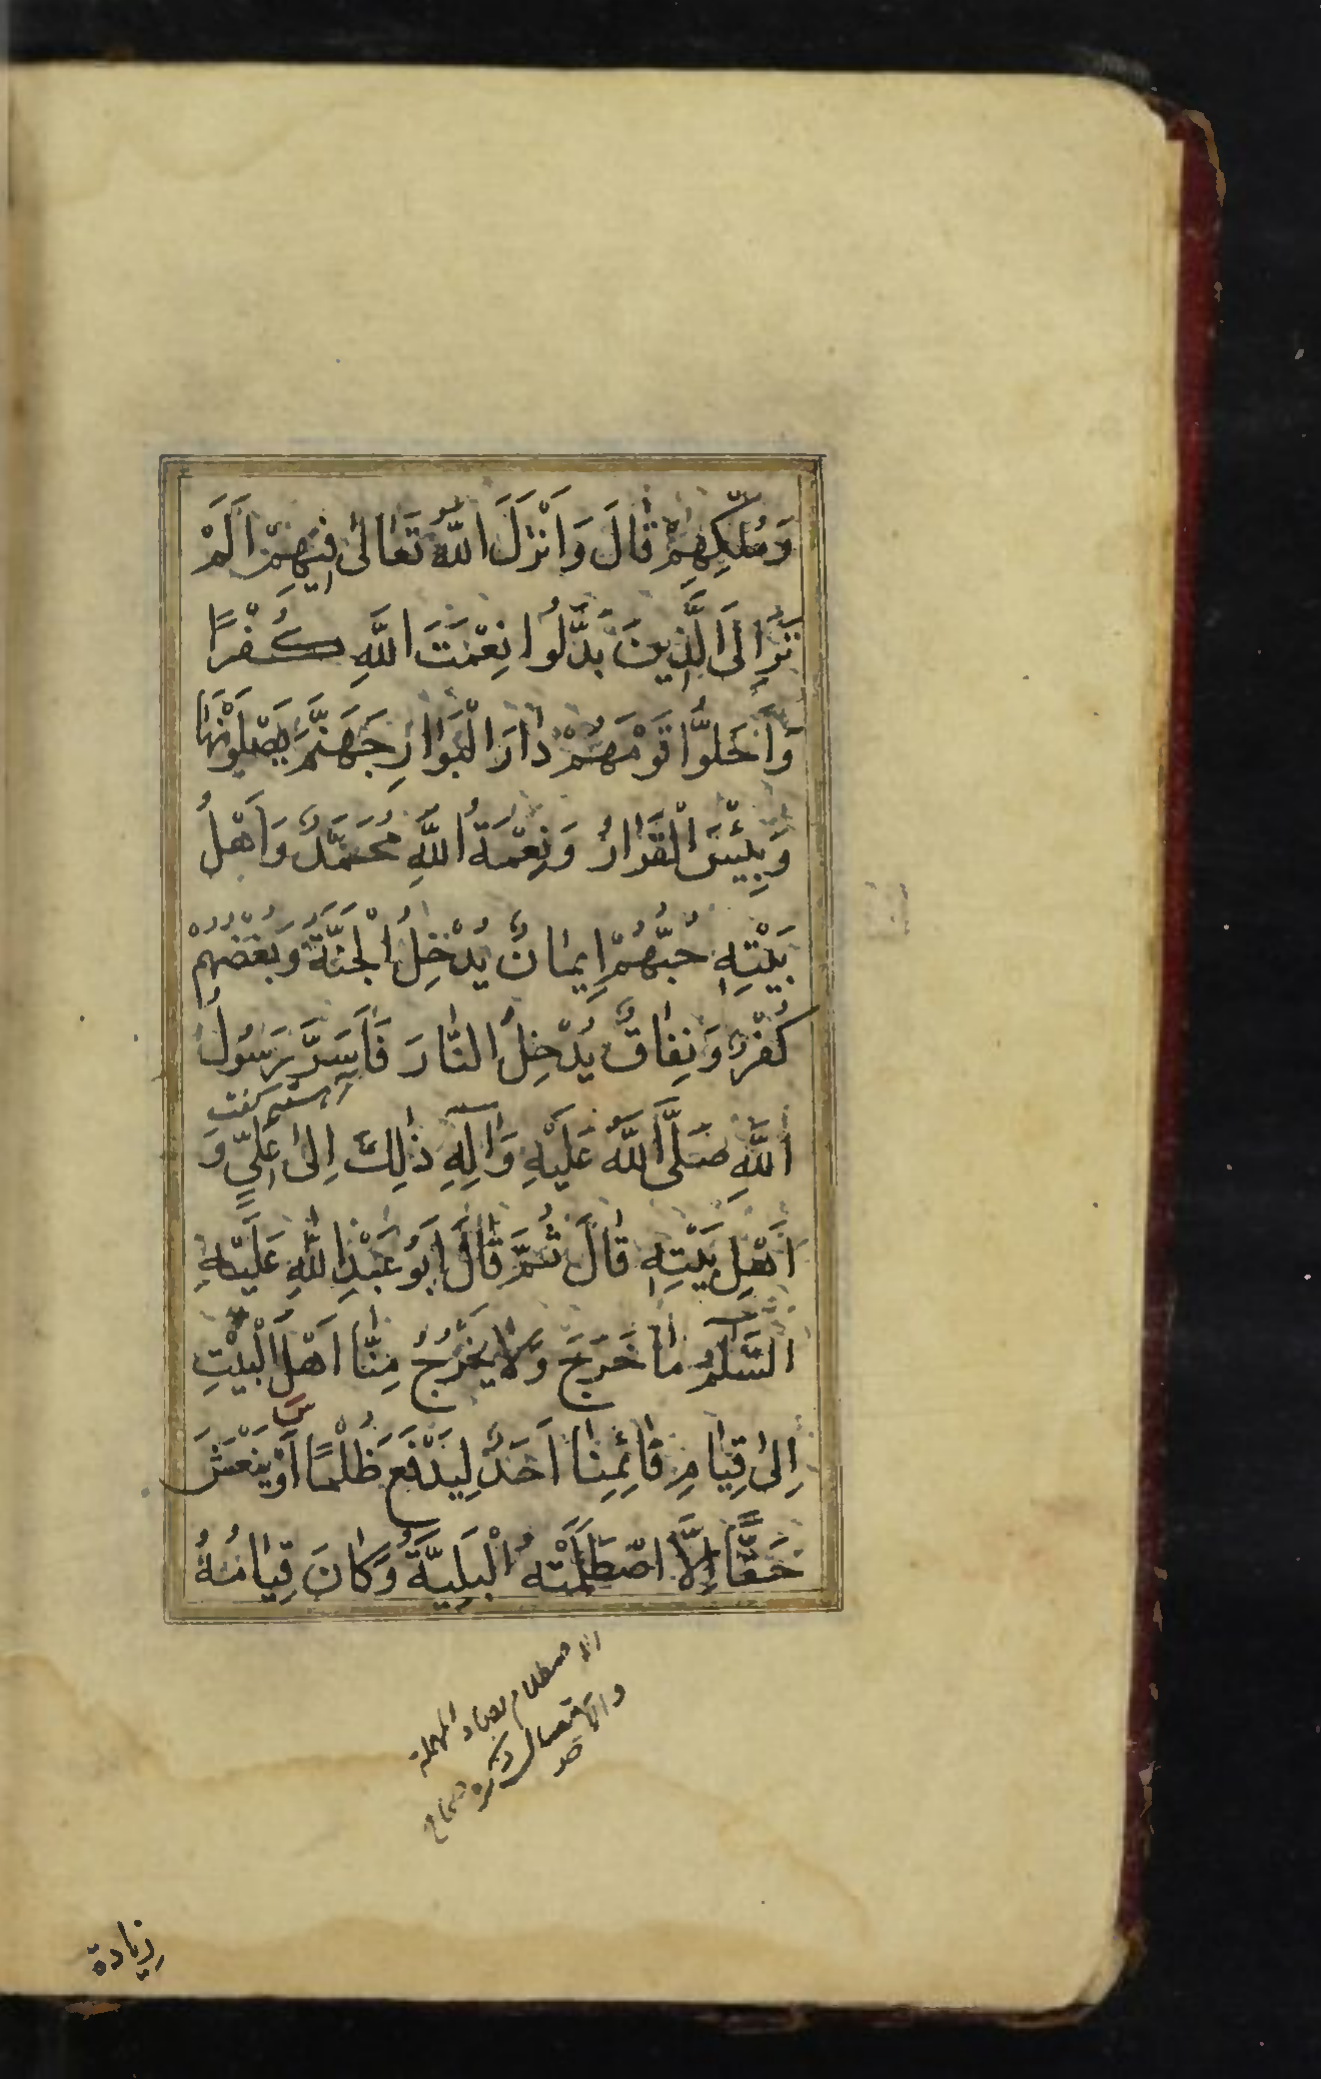 وَمُلْكِهِمْ قَالَ وَاَنْزَلَ اللّٰهُ تَعَالٰى فِيهِمْ اَلَمْ
تَرَ اِلَى الَّذِينَ بَدَّلُوا نِعْمَتَ اللّٰهِ كُفْرًا
وَاَحَلُّوا قَوْمَهُمْ دَارَ الْبَوَارِ جَهَنَّمَ يَصْلَوْنَهَا
وَبِئْسَ الْقَرَارُ وَنِعْمَةُ اللّٰهِ مُحَمَّدٌ وَاَهْلُ
بَيْتِهِ حُبُّهُمْ اِيمَانٌ يُدْخِلُ الْجَنَّةَ وَبُغْضُهُمْ
كُفْرٌ وَنِفَاقٌ يُدْخِلُ النَّارَ فَاَسَرَّ رَسُولُ
اللّٰهِ صَلَّى اللّٰهُ عَلَيْهِ وَاٰلِهِ ذٰلِكَ اِلٰى عَلِيٍّ وَ
اَهْلِ بَيْتِهِ قَالَ ثُمَّ قَالَ اَبُو عَبْدِ اللّٰهِ عَلَيْهِ
السَّلَمُ مَا خَرَجَ وَلَا يَخْرُجُ مِنَّا اَهْلَ الْبَيْتِ
اِلٰى قِيَامِ قَائِمِنَا اَحَدٌ لِيَدْفَعَ ظُلْمًا اَوْ يَنْعَشَ
حَقًّا اِلَّا اصْطَلَمَتْهُ الْبَلِيَّةُ وَكَانَ قِيَامُهُ
الاصطلام بصاد المهملة
زيادة